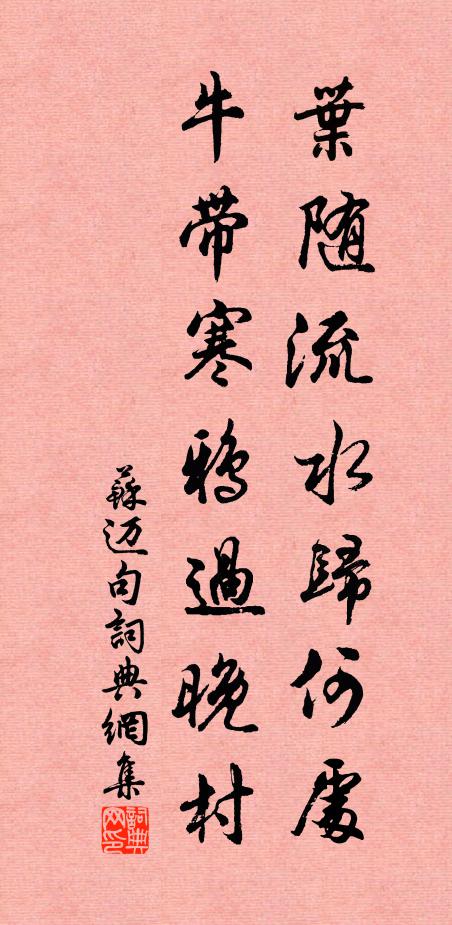 葉随流水歸何處
牛帶寒鴉過晚村
蘇迈句詞典網集
詞典网印